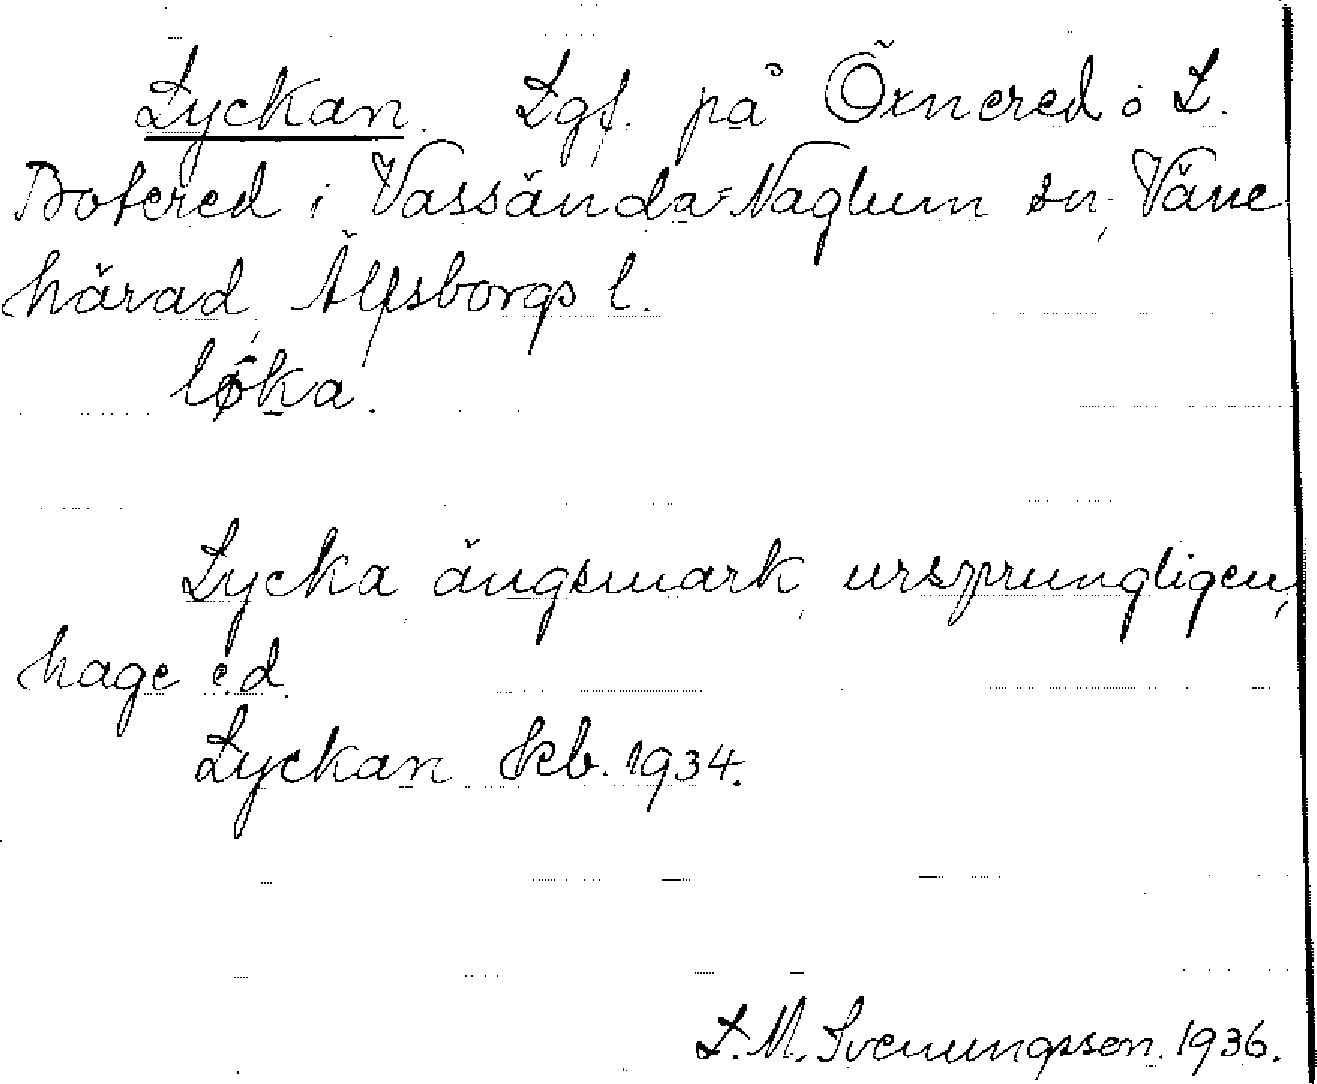 Lyckan. Lgf. på Öxnered o L.
Botered i Vassända-Naglum sn, Väne
härad, Älfsborgs l.
lǿka.
Lycka ängsmark, ursprungligen,
hage e.d.
Lyckan Jkb. 1934.
L. M. Svenungsson. 1936.